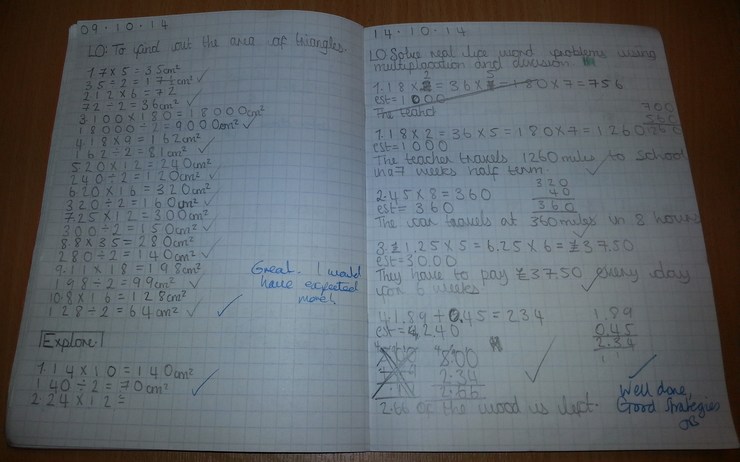 09.10.14
LO: To find out the area of triangles.
1. 7 x 5 = 35cm²
35 ÷ 2 = 17½cm² ✓
2. 12 x 6 = 72
72 ÷ 2 = 36cm² ✓
3. 100 x 180 = 18000cm²
18000 ÷ 2 = 9000cm² ✓
4. 18 x 9 = 162cm²
162 ÷ 2 = 81cm² ✓
5. 20 x 12 = 240cm²
240 ÷ 2 = 120cm² ✓
6. 20 x 16 = 320cm²
320 ÷ 2 = 160cm² ✓
7. 25 x 12 = 300cm²
300 ÷ 2 = 150cm² ✓
8. 8 x 35 = 280cm²
280 ÷ 2 = 140cm² ✓
9. 11 x 18 = 198cm²
198 ÷ 2 = 99cm² ✓
10. 8 x 16 = 128cm²
128 ÷ 2 = 64cm² ✓
Great. I would
have expected
more!
Explore
1. 14 x 10 = 140cm²
140 ÷ 2 = 70cm²
2. 24 x 12 =
14.10.14
LO Solve real life word problems using
multiplication and division.
1. 18 x 2 = 36 x 5 = 180 x 7 = 756
est = 1000
The teahd
700
560
1260
1. 18 x 2 = 36 x 5 = 180 x 7 = 1260
est = 1000
The teacher travels 1260 miles to school
in a 7 weeks half term.
2. 45 x 8 = 360
est = 360
320
40
360
The car travels at 360 miles in 8 hours
3. £1.25 x 5 = 6.25 x 6 = £37.50
est = 30.00
They have to pay £37.50 every day
for 6 weeks
4. 1.89 + 0.45 = 234
est = 2.40
1.89
0.45
2.34
1
8.00
2.34
2.66
2.66 of the wood is left.
Well done,
Good strategies